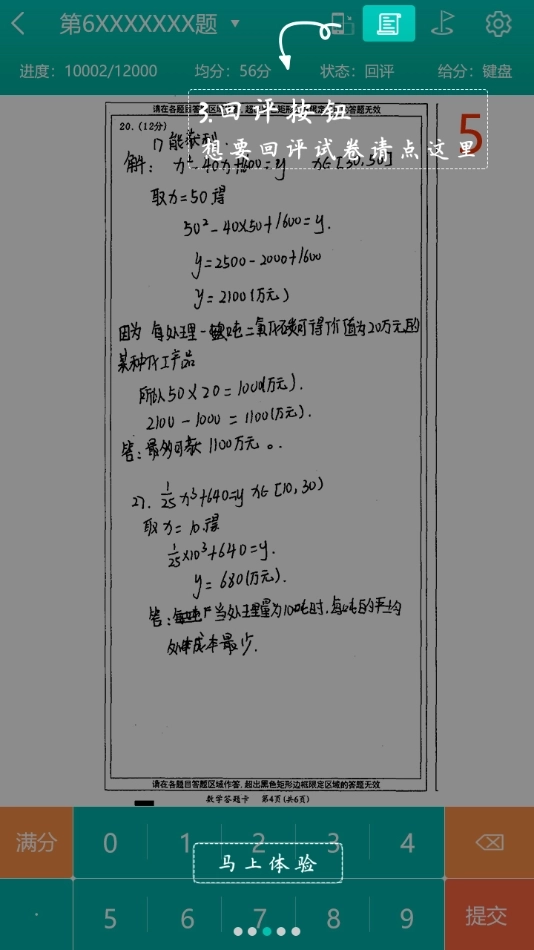 第6XXXXXXX题
进度：10002/12000 均分：56分 状态：回评 给分：键盘
3.回评按钮
想要回评试卷请点这里
5
20.(12分)
1) 能获利.
解： 取x=50得
50²-40×50+1600=y.
y=2500-2000+1600
y=2100(万元)
因为 每处理一吨二氧化碳可得价值为20万元的
某种化工产品
所以50×20=1000(万元).
2100-1000=1100(万元).
答：最多可获 1100万元。
2). 1/25 x³+640=y x∈[10,30)
取x=10得
1/25×10³+640=y.
y=680(万元).
答： 当处理量为10吨时,每吨的平均
处理成本最少.
请在各题目答题区域作答，超出黑色矩形边框限定区域的答题无效
数学答题卡 第4页(共6页)
满分 0 1 2 3 4
马上体验
. 5 6 7 8 9 提交